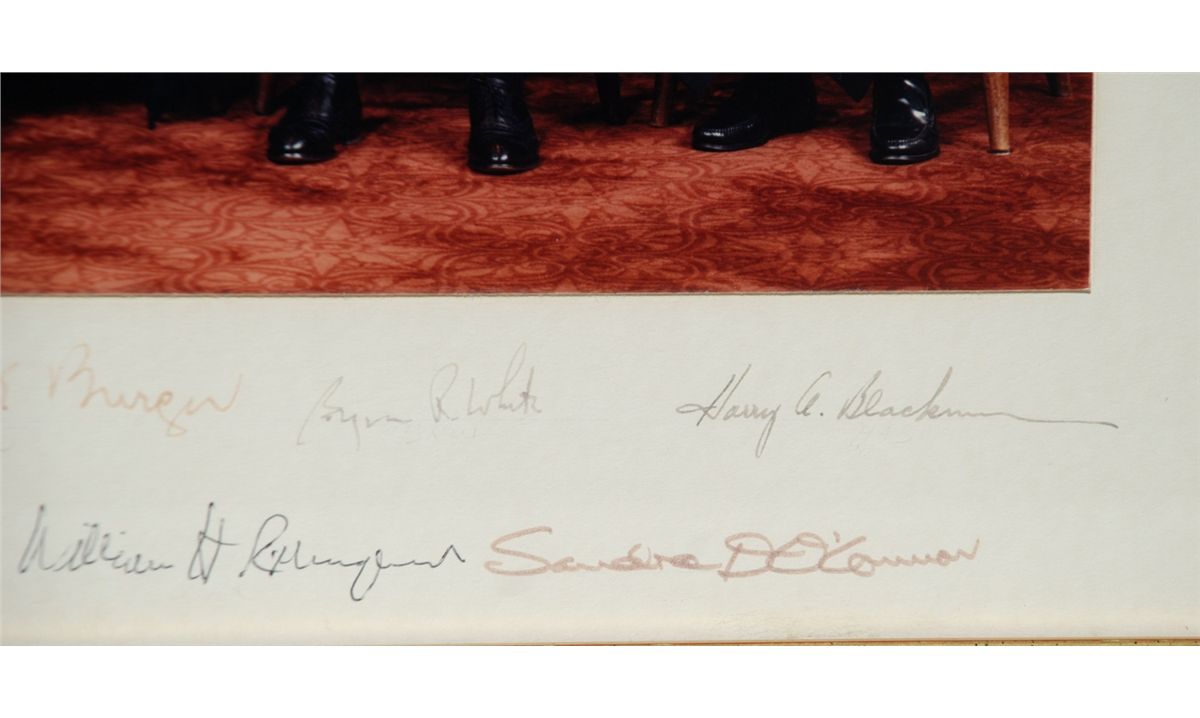 Burger Byron R. White Harry A. Blackmun
William H. Rehnquist Sandra D O'Connor